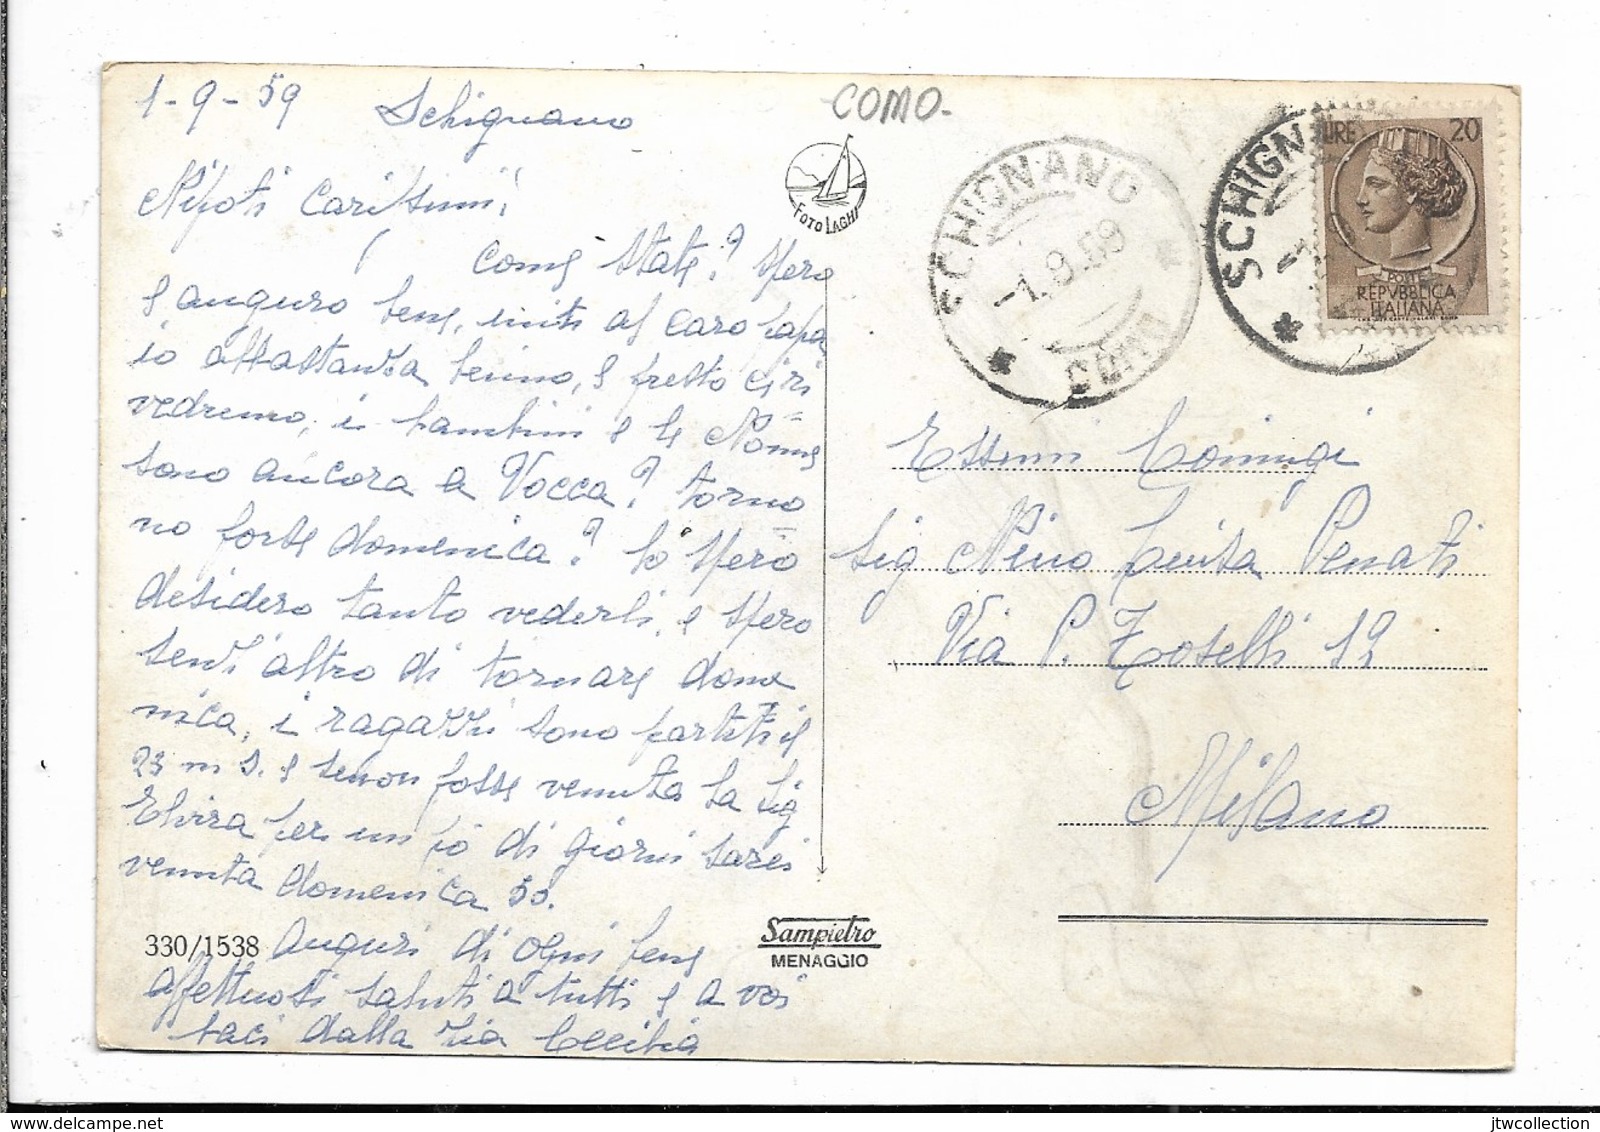 1-9-59 Schignano
COMO-
Nipoti Carissimi,
come state? spero
e auguro bene, uniti al caro papà
io abbastanza benino, e presto ci ri
vedremo, i bambini e le Nonne
sono ancora a Vocca? torno
no forse domenica? lo spero
desidero tanto vederli, e spero
senz'altro di tornare dome
nica, i ragazzi sono partiti il
23 m s. e se non fosse venuta la Sig
Elvira per un po di giorni sarei
venuta domenica 30.
Auguri di ogni bene
affettuosi saluti a tutti e a voi
baci dalla Zia Cecilia
330/1538
FOTO LAGHI
Sampietro
MENAGGIO
SCHIGNANO
-1.9.59
COMO
SCHIGN
LIRE 20
POSTE
REPVBBLICA
ITALIANA
Coniugi
Sig Nino Penati
Via P. Toselli 19
Milano
jtwcollection